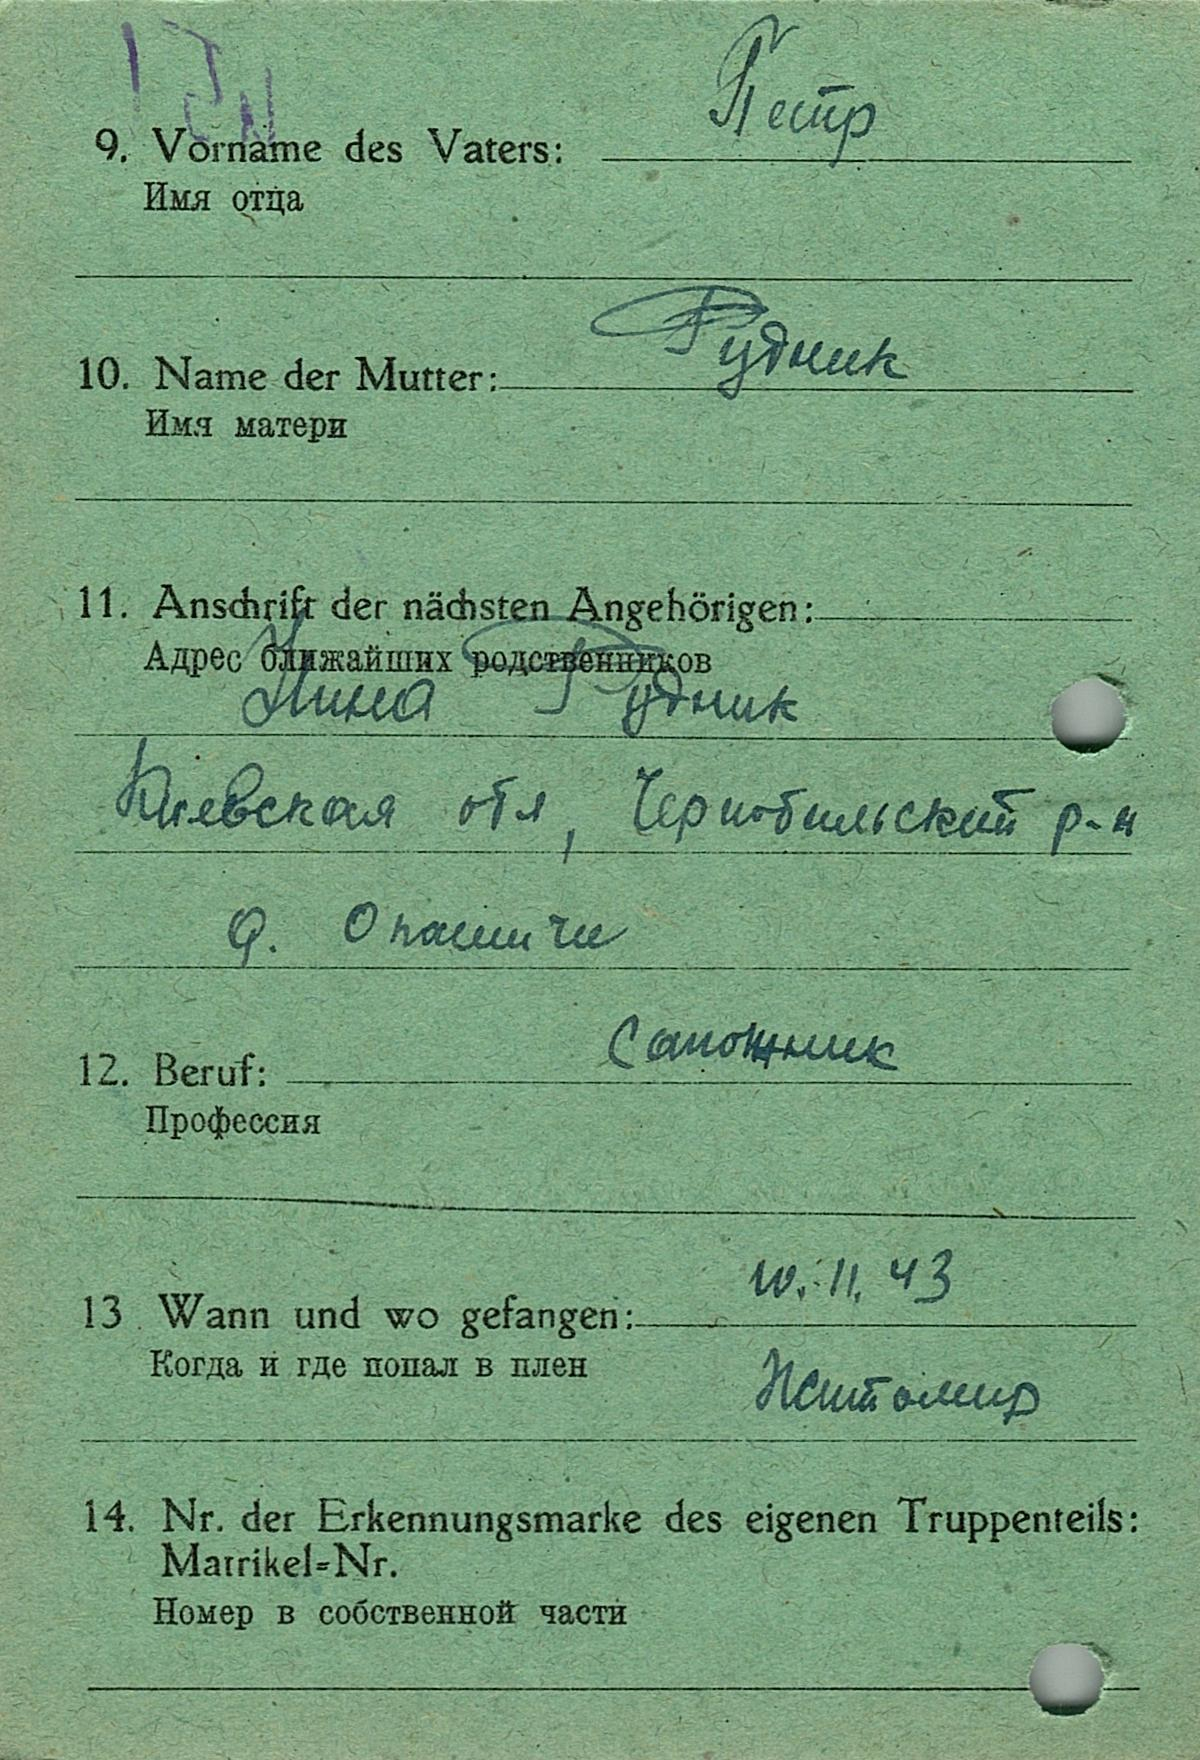 Петр
9. Vorname des Vaters:
Имя отца
Рудник
10. Name der Mutter:
Имя матери
11. Anschrift der nächsten Angehörigen:
Адрес ближайших родственников
Нина Рудник
Киевская обл, Чернобильский р-н
д. Опашичи
Сапожник
12. Beruf:
Профессия
10. 11. 43
13. Wann und wo gefangen:
Когда и где попал в плен
Житомир
14. Nr. der Erkennungsmarke des eigenen Truppenteils:
Matrikel=Nr.
Номер в собственной части